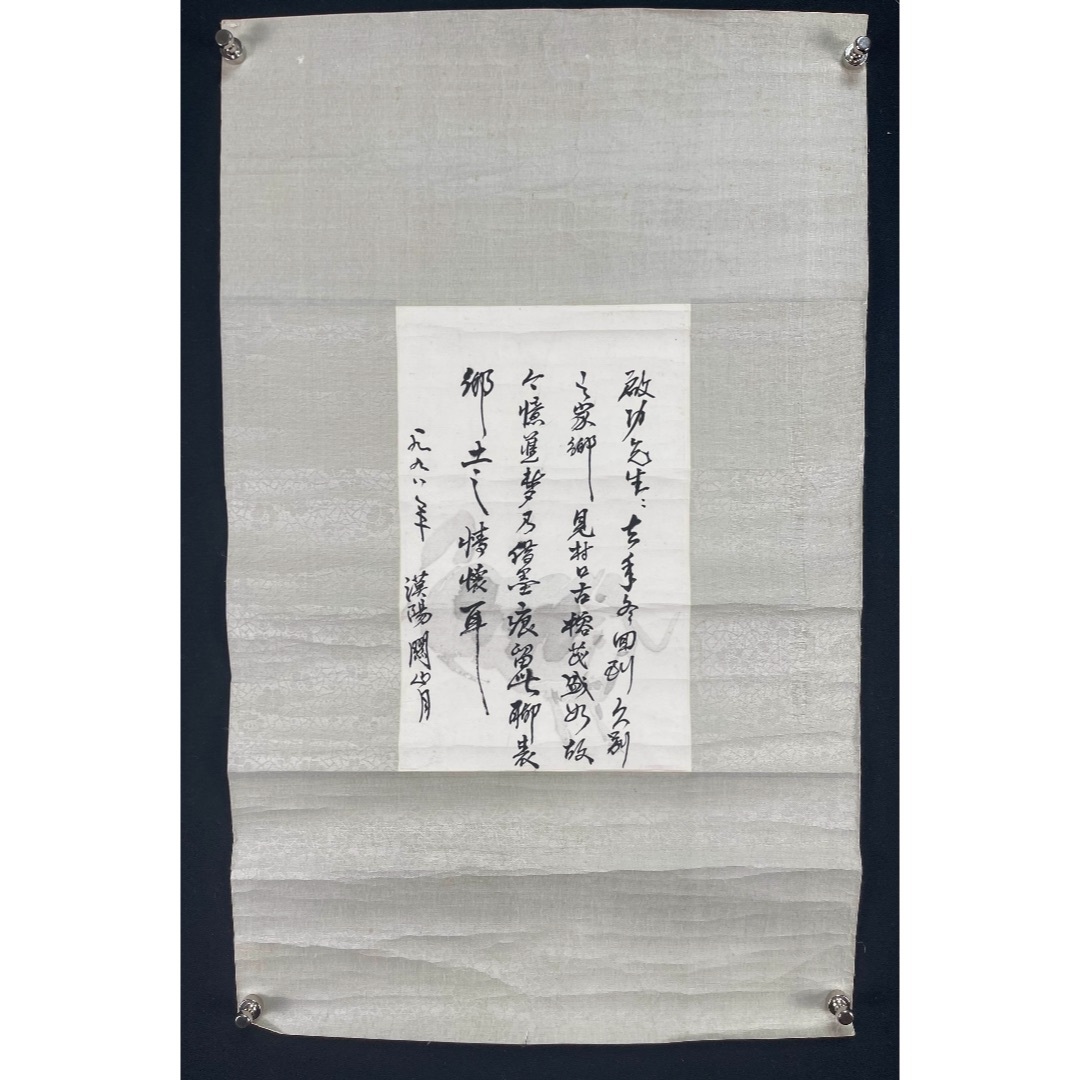 啟功先生：去年冬回到久别
之家鄉見村口古榕茂盛如故
今憶舊夢乃借墨痕留此聊表
鄉土之情懷耳
一九九八年 漢陽關山月